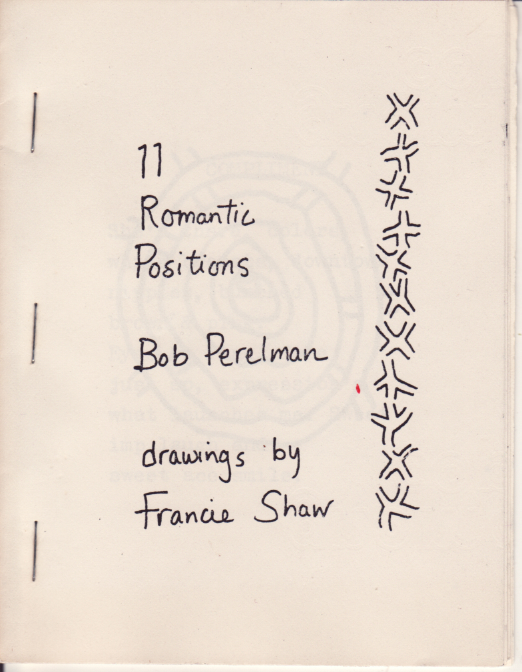 11
Romantic
Positions
Bob Perelman
drawings by
Francie Shaw